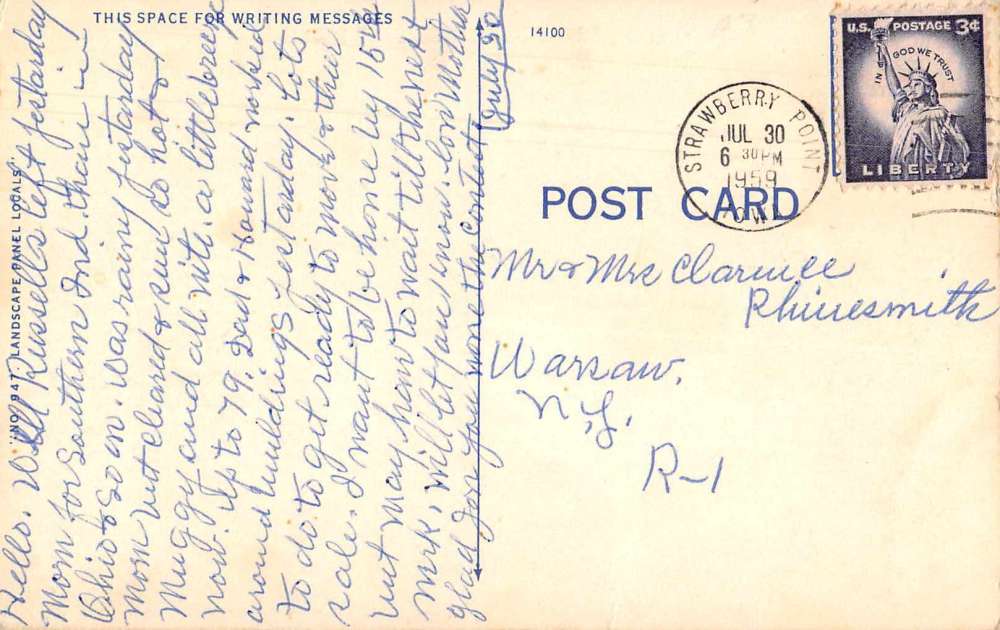 THIS SPACE FOR WRITING MESSAGES
14100
U.S. POSTAGE 3¢
IN GOD WE TRUST
LIBERTY
STRAWBERRY POINT
JUL 30
6 30 PM
1959
IOWA
POST CARD
Mr & Mrs Clarence
Rhinesmith
Warsaw,
N.Y.
R-1
"NO. 947 LANDSCAPE PANEL LOCALS"
Hello. Well Russells left yestarday
morn for Southern Ind. then in
Ohio & so on. Was rainy yestarday
morn but cleared & sun so hot &
muggy and all nite. a little breeze
now. up to 79. Dad & Howard worked
around buildings yestarday. Lots
to do to get ready to move & their
sale. I want to be home by 15th
but may have to wait till the next
wek, will let you know. love Mother
glad you won the contest
July 30